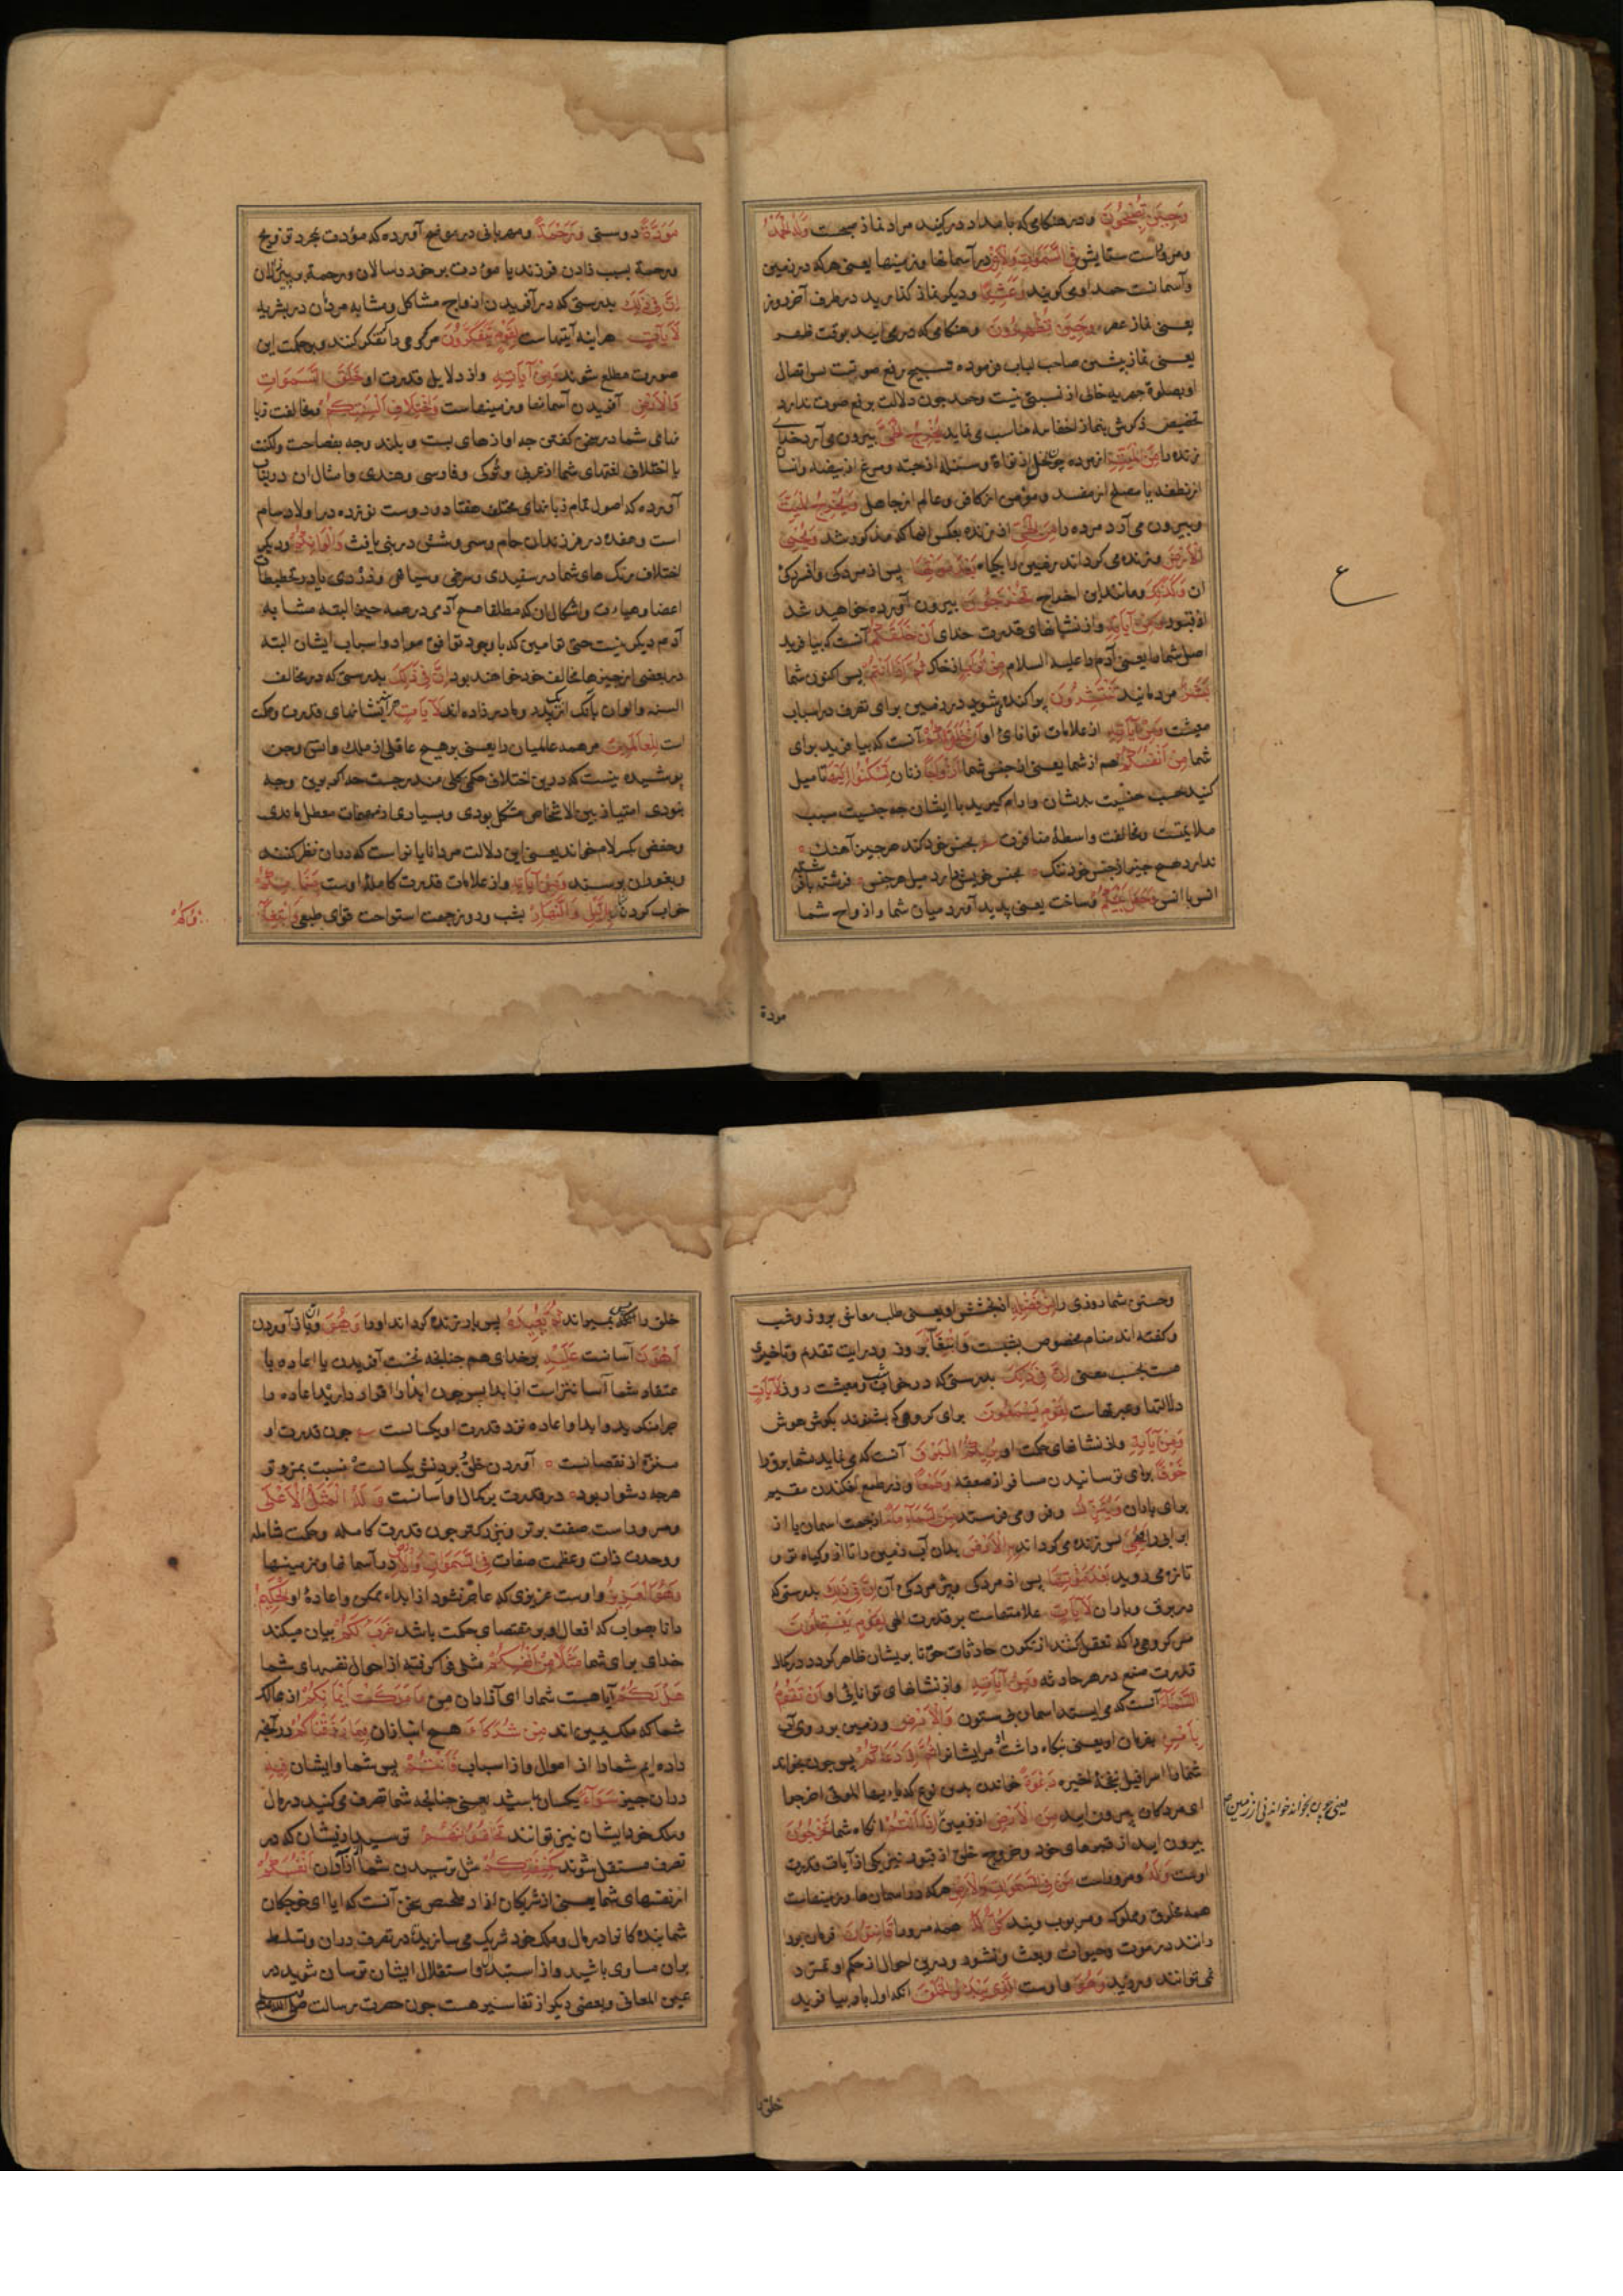 وَحِينَ تُصْبِحُونَ و در هنکامی که بامداد در کنید مراد نماز صبحست وَلَهُ الْحَمْدُ
ومروراست ستایش فِی السَّمَوَاتِ وَالْاَرْضِ در آسمانها و زمینها یعنی هرکه در زمین
وآسمانست حمد او می کویند وَعَشِيًّا و دیکر نماز کذارید در طرف آخر روز
یعنی نماز عصر وَحِينَ تُظْهِرُونَ و هنکامی که در می ایید بوقت ظهر
یعنی نماز پیشین صاحب لباب فرموده تسبیح رفع صوتست پس اتصال
او بصلوة جهریه خالی از نسبتی نیست وحمد چون دلالت بر رفع صوت ندارد
تخصیص ذکرش بنماز اخفا مناسب می نماید يُخْرِجُ الْحَيَّ بیرون می آرد خدای
زنده را مِنَ الْمَيِّتِ از مرده چون نخل از نواة وسنبله از حبه ومرغ از بیضه وانسان
از نطفه یا مصلح از مفسد ومؤمن از کافر وعالم از جاهل وَيُخْرِجُ الْمَيِّتَ
وبیرون می آرد مرده را مِنَ الْحَيِّ از زنده بعکس انها که مذکور شد وَيُحْيِي
الْاَرْضَ وزنده می کرداند زمین را بکیاه بَعْدَ مَوْتِهَا پس از مردکی وافسردکی
ان وَكَذٰلِكَ ومانند این اخراج تُخْرَجُونَ بیرون آورده خواهید شد
از قبور وَمِنْ آيَاتِهِ واز نشانهای قدرت خدای اَنْ خَلَقَكُمْ آنست که بیافرید
اصل شما را یعنی آدم را علیه السلام مِنْ تُرَابٍ از خاک ثُمَّ اِذَا اَنْتُمْ پس اکنون شما
بَشَرٌ مردمانید تَنْتَشِرُونَ پراکنده می شوید در زمین برای تصرف در اسباب
معیشت وَمِنْ آيَاتِهِ از علامات توانائ او اَنْ خَلَقَ لَكُمْ آنست که بیافرید برای
شما مِنْ اَنْفُسِكُمْ هم از شما یعنی از جنس شما اَزْوَاجًا زنان لِتَسْكُنُوا اِلَيْهَا تا میل
کنید بحسب جنسیت بدیشان وارام کیرید با ایشان چه جنسیت سبب
ملایمتست ومخالفت واسطۀ منافرت بجنس خود کند هر جنس آهنک
ندارد هیچ جنس از جنس خود ننک بجنس خویش دارد میل هر جنس فرشته با فرشته
انس با انس وَجَعَلَ بَيْنَكُمْ وساخت یعنی پدید آورد میان شما و ازواج شما
ع
مودة
مَوَدَّةً دوستی وَرَحْمَةً ومهربانی در موضح آورده که مودت بمجرد تزویج
ورحمة بسبب زادن فرزند یا مودت بر خورد سالان ورحمة بر پیران
اِنَّ فِی ذٰلِكَ بدرستی که در آفریدن ازواج مشاکل ومشابه مردان در بشریه
لَآيَاتٍ هراینه آیتهاست لِقَوْمٍ يَتَفَكَّرُونَ مر کروهی را که تفکر کنند وبر حکمت این
صورت مطلع شوند وَمِنْ آيَاتِهِ واز دلایل قدرت او خَلْقُ السَّمَوَاتِ
وَالْاَرْضِ آفریدن آسمانها وزمینهاست وَاخْتِلَافُ اَلْسِنَتِكُمْ ومخالفت زبا
نهای شما در سخن کفتن چه اوازهای پست و بلند وچه بفصاحت ولکنت
یا اختلاف لغتهای شما از عربی وترکی وفارسی وهندی وامثال ان در تیان
آورده که اصول تمام زبانهای مختلف هفتاد ودوست نوزده در اولاد سام
است وهفده در فرزندان حام وسی وشش در بنی یافث وَاَلْوَانِكُمْ ودیکر
اختلاف رنک های شما در سفیدی وسرخی وسیاهی وزردی یا در تخطیطات
اعضا وهیاءت واشکال ان که مطلقا هیچ آدمی در همه چیز البته مشابه
آدم دیکر نیست حتی توامین که با وجود توافق مواد واسباب ایشان البته
در بعضی از چیزها مخالف خود خواهند بود اِنَّ فِی ذٰلِكَ بدرستی که در مخالف
السنه والوان بآنک از یک پدر ومادر زاده اند لَآيَاتٍ هر آینه نشانهای قدرت وحکمت
است لِلْعَالَمِينَ مر همه عالمیان را یعنی بر هیچ عاقلی از ملک وانس وجن
پوشیده نیست که در این اختلاف حکمی کلی مندرجست چه اکر برین وجه
نبودی امتیاز بین الاشخاص مشکل بودی وبسیاری از مهمات معطل ماندی
وحفص بکسر لام خواند یعنی این دلالت مر دانایانراست که در ان نظر کنند
وبغور ان برسند وَمِنْ آيَاتِهِ واز علامات قدرت کاملۀ اوست مَنَامُكُمْ
خواب کردن بِاللَّيْلِ وَالنَّهَارِ بشب وروز جهت استراحت قوای طبیعی وَابْتِغَاؤُ
وُكُمْ
وجستن شما روزی را مِنْ فَضْلِهِ از بخشش او یعنی طلب معاش بروز وشب
وکفته اند منام مخصوص بشبست وابتغا بروز ودر ایت تقدم وتاخیری
هست بحسب معنی اِنَّ فِی ذٰلِكَ بدرستی که در خواب شب ومعیشت روز لَآيَاتٍ
دلالتها وعبرتهاست لِقَوْمٍ يَسْمَعُونَ برای کروهی که بشنوند بکوش هوش
وَمِنْ آيَاتِهِ واز نشانهای حکمت او يُرِيكُمُ الْبَرْقَ آنست که می نماید شما برق را
خَوْفًا برای ترسانیدن مسافر از صعقه وَطَمَعًا ودر طمع افکندن مقیم
برای باران وَيُنَزِّلُ وفرو می فرستد مِنَ السَّمَاءِ مَاءً از جهت اسمان یا از
ابر ابی را فَيُحْيِي پس زنده می کرداند بِهِ الْاَرْضَ بدان آب زمین را تا از و کیاه تر و
تازه می روید بَعْدَ مَوْتِهَا پس از مردکی وپژمردکی آن اِنَّ فِی ذٰلِكَ بدرستی که
در برق وباران لَآيَاتٍ علامتهاست بر قدرت الهی لِقَوْمٍ يَعْقِلُونَ
مر کروهی را که تعقل کنند از تکون حادثات حق تا بریشان ظاهر کردد در کمال
قدرت صنع در هر حادثه وَمِنْ آيَاتِهِ واز نشانهای توانایی او اَنْ تَقُومَ
السَّمَاءُ آنست که می ایستد اسمان بی ستون وَالْاَرْضُ وزمین بر روی آب
بِاَمْرِهِ بفرمان او یعنی نکاه داشت او مر ایشانرا ثُمَّ اِذَا دَعَاكُمْ پس چون بخواند
شما را اسرافیل بنفخۀ اخیره دَعْوَةً خواندن بدین نوع که ایها الموتی اخرجوا
ای مردکان بیرون ایید مِنَ الْاَرْضِ از زمین اِذَا اَنْتُمْ انکاه شما تَخْرُجُونَ
بیرون ایید از قبرهای خود وخروج خلق از قبور نیز یکی از آیات قدرت
اوست وَلَهُ ومروراست مَنْ فِی السَّمَوَاتِ وَالْاَرْضِ هرکه در اسمانها وزمینهاست
همه مخلوق ومملوک ومربوب ویند كُلٌّ لَهُ همه مر ورا قَانِتُونَ فرمان بردا
رانند در موت وحیوات وبعث ونشور ودرین احوال از حکم او تمرد
نمی توانند ورزید وَهُوَ واوست الَّذِی يَبْدَؤُا الْخَلْقَ انکه اول بار بیافرید
یعنی چون بخواند خواندنی از زمین
خلق را
خلق را پس بمیراند ثُمَّ يُعِيدُهُ پس باز زنده کرداند او را وَهُوَ وباز آوردن
اَهْوَنُ آسانست عَلَيْهِ بر خدای هم چنانچه نخست آفریدن یا اعاده با
عتقاد شما آسانتر است از ابدا پس چون ابدا را اقرار دارید اعاده را
چرا منکرید وابدا واعاده نزد قدرت او یکسانست چون قدرت او
منزه از نقصانست آوردن خلق وبردنش یکسانست نسبت بمن وتو
هرچه دشوار بود در قدرت بر کمال او آسانست وَلَهُ الْمَثَلُ الْاَعْلَى
ومروراست صفت برتر وبزرکتر چون قدرت کامله وحکمت شامله
ووحدت ذات وعظمت صفات فِی السَّمَوَاتِ وَالْاَرْضِ در آسمانها وزمینها
وَهُوَ الْعَزِيزُ واوست عزیزی که عاجز نشود از ابداء ممکن واعادۀ او الْحَكِيمُ
دانا بصواب که افعال او بر مقتضای حکمت باشد ضَرَبَ لَكُمْ بیان میکند
خدای برای شما مَثَلًا مِنْ اَنْفُسِكُمْ مثلی فرا کرفته از احوال نفسهای شما
هَلْ لَكُمْ آیا هست شما را ای آزادان مِنْ مَا مَلَكَتْ اَيْمَانُكُمْ از ممالک
شما که ملک یمین اند مِنْ شُرَكَاءَ هیچ انبازان فِی مَا رَزَقْنَاكُمْ در آنچه
داده ایم شما را از اموال واز اسباب فَاَنْتُمْ پس شما وایشان فِيهِ
در ان چیز سَوَاءٌ یکسان باشید یعنی چنانچه شما تصرف می کنید در مال
وملک خود ایشان نیز توانند تَخَافُونَهُمْ ترسید از یشان که در
تصرف مستقل شوند كَخِيفَتِكُمْ مثل ترسیدن شما از ازادان اَنْفُسَكُمْ
از نفسهای شما یعنی از شریکان ازاد ملخص سخن آنست که ایا ای خواجکان
شما بندکانرا در مال وملک خود شریک می سازید تا در تصرف در ان وتسلط
بران مساوی باشید واز استبداد واستقلال ایشان ترسان شوید در
عین المعانی وبعضی دیکر از تفاسیر هست چون حضرت رسالت صلی الله علیه